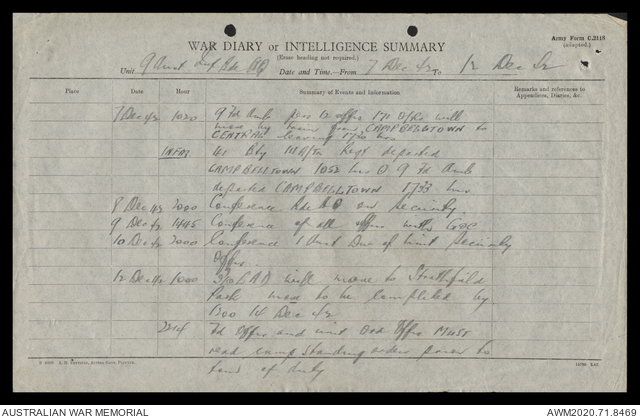 Army Form C.2118
(adapted.)
WAR DIARY or INTELLIGENCE SUMMARY
(Erase heading not required.)
Unit 9 Aust Inf Bde HQ Date and Time—From 7 Dec 42 To 12 Dec 42
Place Date Hour Summary of Events and Information Remarks and references to
Appendices, Diaries, &c.
7 Dec 42 1020 9 Fd Amb pers 12 offrs 171 O/Rs will
move by train from CAMPBELLTOWN to
CENTRAL leaving 1730 hrs
41 Bty Regt departed
CAMPBELLTOWN 1052 hrs 9 Fd Amb
departed CAMPBELLTOWN 1733 hrs
8 Dec 42 2000 Conference Bde HQ on Security
9 Dec 42 1445 Conference of all offrs with GOC
10 Dec 42 2000 Conference 1 Aust Div of unit Security
Offrs
12 Dec 42 1000 LAD will move to Strathfield
Park move to be completed by
1200 14 Dec 42
2214 Fd Offrs and unit Ord Offrs MUST
read camp standing orders prior to
tour of duty
AUSTRALIAN WAR MEMORIAL
AWM2020.71.8469